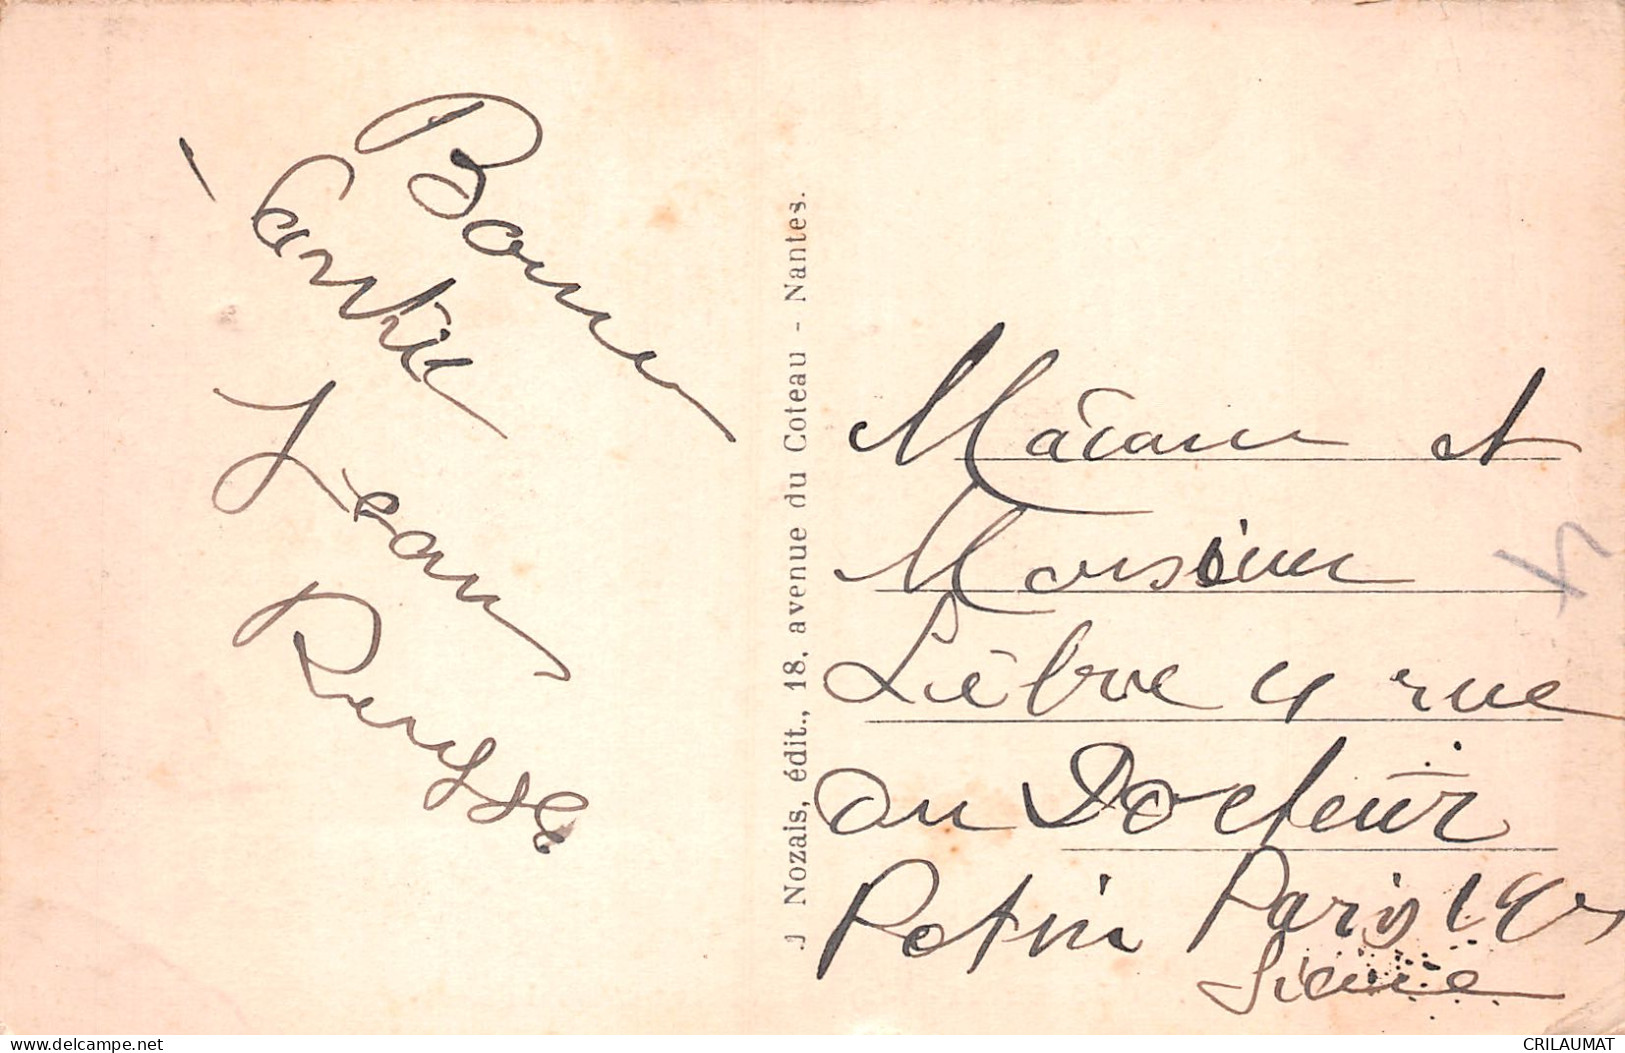 Bonne
Santée
Jean
J Nozais, édit., 18, avenue du Coteau - Nantes.
Madame et
Monsieur
Lièbre 4 rue
du Docteur
Potin Paris 19
Seine
delcampe.net
CRILAUMAT